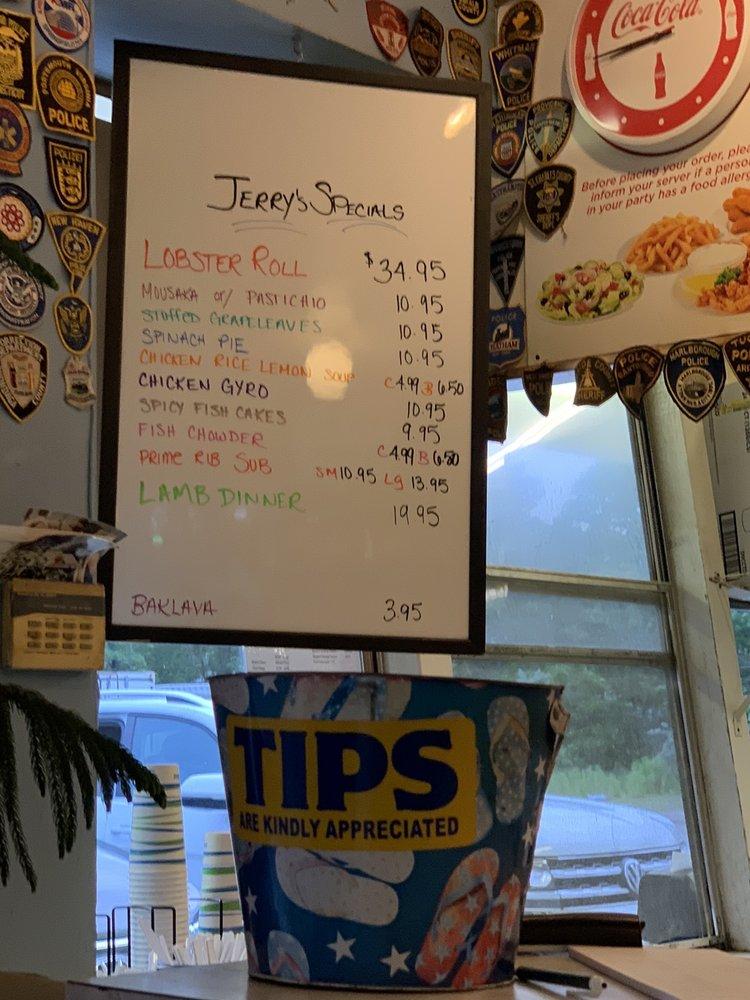 Coca-Cola
Before placing your order, plea
inform your server if a perso
in your party has a food aller
JERRY'S SPECIALS
LOBSTER ROLL $34.95
MOUSAKA or/ PASTICHIO 10.95
STUFFED GRAPELEAVES 10.95
SPINACH PIE 10.95
CHICKEN RICE LEMON SOUP C4.99 B 6.50
CHICKEN GYRO 10.95
SPICY FISH CAKES 9.95
FISH CHOWDER C4.99 B 6.50
PRIME RIB SUB SM 10.95 Lg 13.95
LAMB DINNER 19.95
BAKLAVA 3.95
TIPS
ARE KINDLY APPRECIATED
POLICE
POLIZEI
NEW HAVEN
WHITMAN
POLICE
POLICE
POLICE
SHERIFF
POLICE
MARLBOROUGH
POLICE